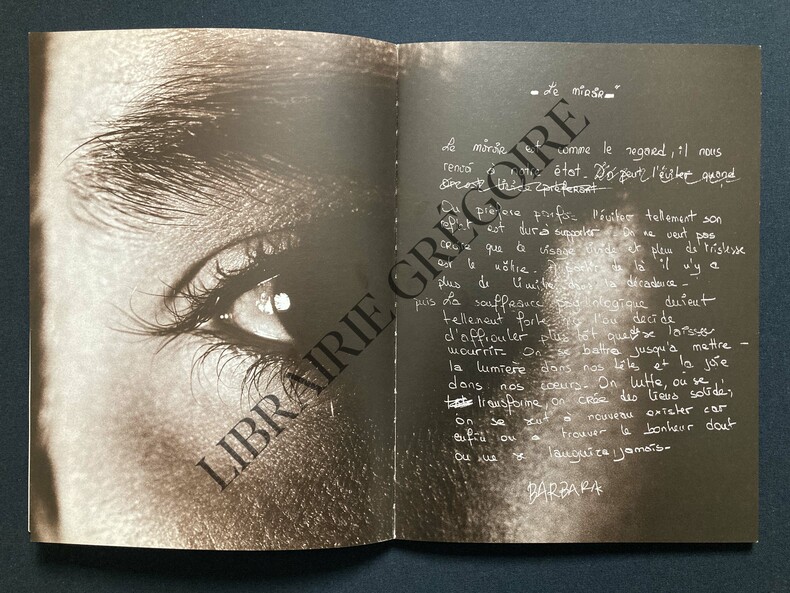 "Le miroir"
Le miroir est comme le regard, il nous
renvoi à notre état. On peut l'éviter quand
On préfère parfois l'éviter tellement son
reflet est dur à supporter. On ne veut pas
croire que ce visage vide et plein de tristesse
est le nôtre. A partir de là il n'y a
plus de limite dans la décadence -
puis La souffrance psychologique devient
tellement forte que l'on décide
d'affronter plus tôt que de se laisser
mourrir. On se battra jusqu'a mettre -
la lumière dans nos têtes et la joie
dans nos coeurs. On lutte, on se
transforme, on crée des liens solide,
on se sent à nouveau exister car
enfin on a trouver le bonheur dont
on ne se languira jamais -
BARBARA
LIBRAIRIE GRÉGOIRE